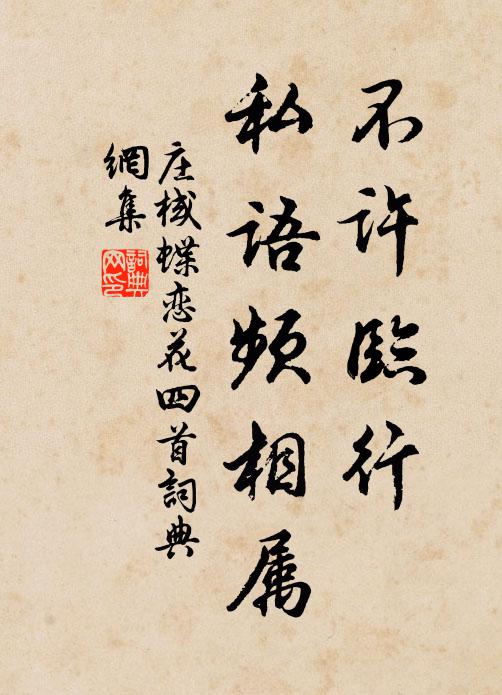 不许臨行
私語頻相属
庄棫蝶恋花四首詞典
網集
詞典
网印